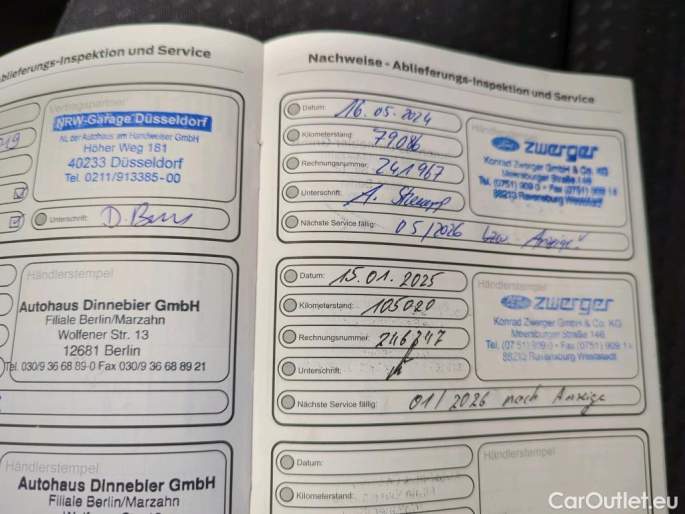 Ablieferungs-Inspektion und Service
Vertragspartner
NRW-Garage Düsseldorf
NL der Autohaus am Handweiser GmbH
Höher Weg 181
40233 Düsseldorf
Tel. 0211/913385-00
Unterschrift:
Händlerstempel
Autohaus Dinnebier GmbH
Filiale Berlin/Marzahn
Wolfener Str. 13
12681 Berlin
Tel. 030/9 36 68 89-0 Fax 030/9 36 68 89 21
Händlerstempel
Autohaus Dinnebier GmbH
Filiale Berlin/Marzahn
Nachweise - Ablieferungs-Inspektion und Service
Datum: 16.05.2024
Kilometerstand: 79086
Rechnungsnummer: 241967
Unterschrift:
Nächste Service fällig: 05/2026 bzw. Anzeige
Ford zwerger
Konrad Zwerger GmbH & Co. KG
Meersburger Straße 146
88213 Ravensburg Weststadt
Datum: 15.01.2025
Kilometerstand: 105020
Rechnungsnummer: 246847
Unterschrift:
Nächste Service fällig: 01/2026 nach Anzeige
Händlerstempel
Ford zwerger
Konrad Zwerger GmbH & Co. KG
Meersburger Straße 146
88213 Ravensburg Weststadt
Datum:
Kilometerstand:
Händlerstempel
CarOutlet.eu